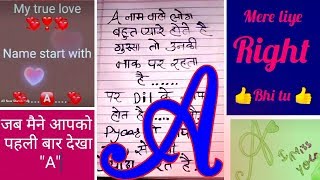 My true love
Name start with
A
जब मैने आपको
पहली बार देखा
"A"
A नाम वाले लोग
बहुत प्यारे होते है
गुस्सा तो उनकी
नाक पर रहता
है
पर Dil के
होते है
A
Mere liye
Right
Bhi tu
I miss
you